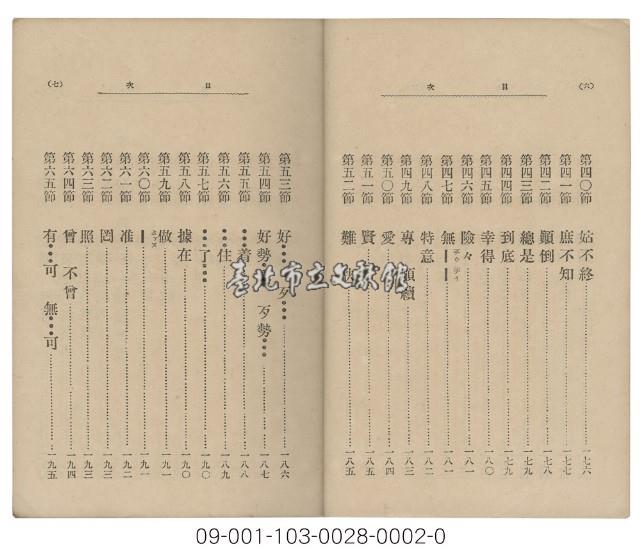 目次
(六)
第四〇節 姑不終 一七六
第四一節 庶不知 一七七
第四二節 顚倒 一七八
第四三節 總是 一七九
第四四節 到底 一七九
第四五節 幸得 一八〇
第四六節 險々 一八一
第四七節 無 一八一
第四八節 特意 一八二
第四九節 專 一八三
第五〇節 愛 一八四
第五一節 賢 一八五
第五二節 難 一八五
目次
(七)
第五三節 好…歹… 一八六
第五四節 好勢…歹勢… 一八七
第五五節 …着 一八八
第五六節 …住 一八九
第五七節 …了… 一九〇
第五八節 據在 一九〇
第五九節 做 一九一
第六〇節 ー 一九一
第六一節 准 一九二
第六二節 罔 一九三
第六三節 照 一九三
第六四節 曾 不曾 一九四
第六五節 有…可 無…可 一九五
臺北市立文獻館
09-001-103-0028-0002-0